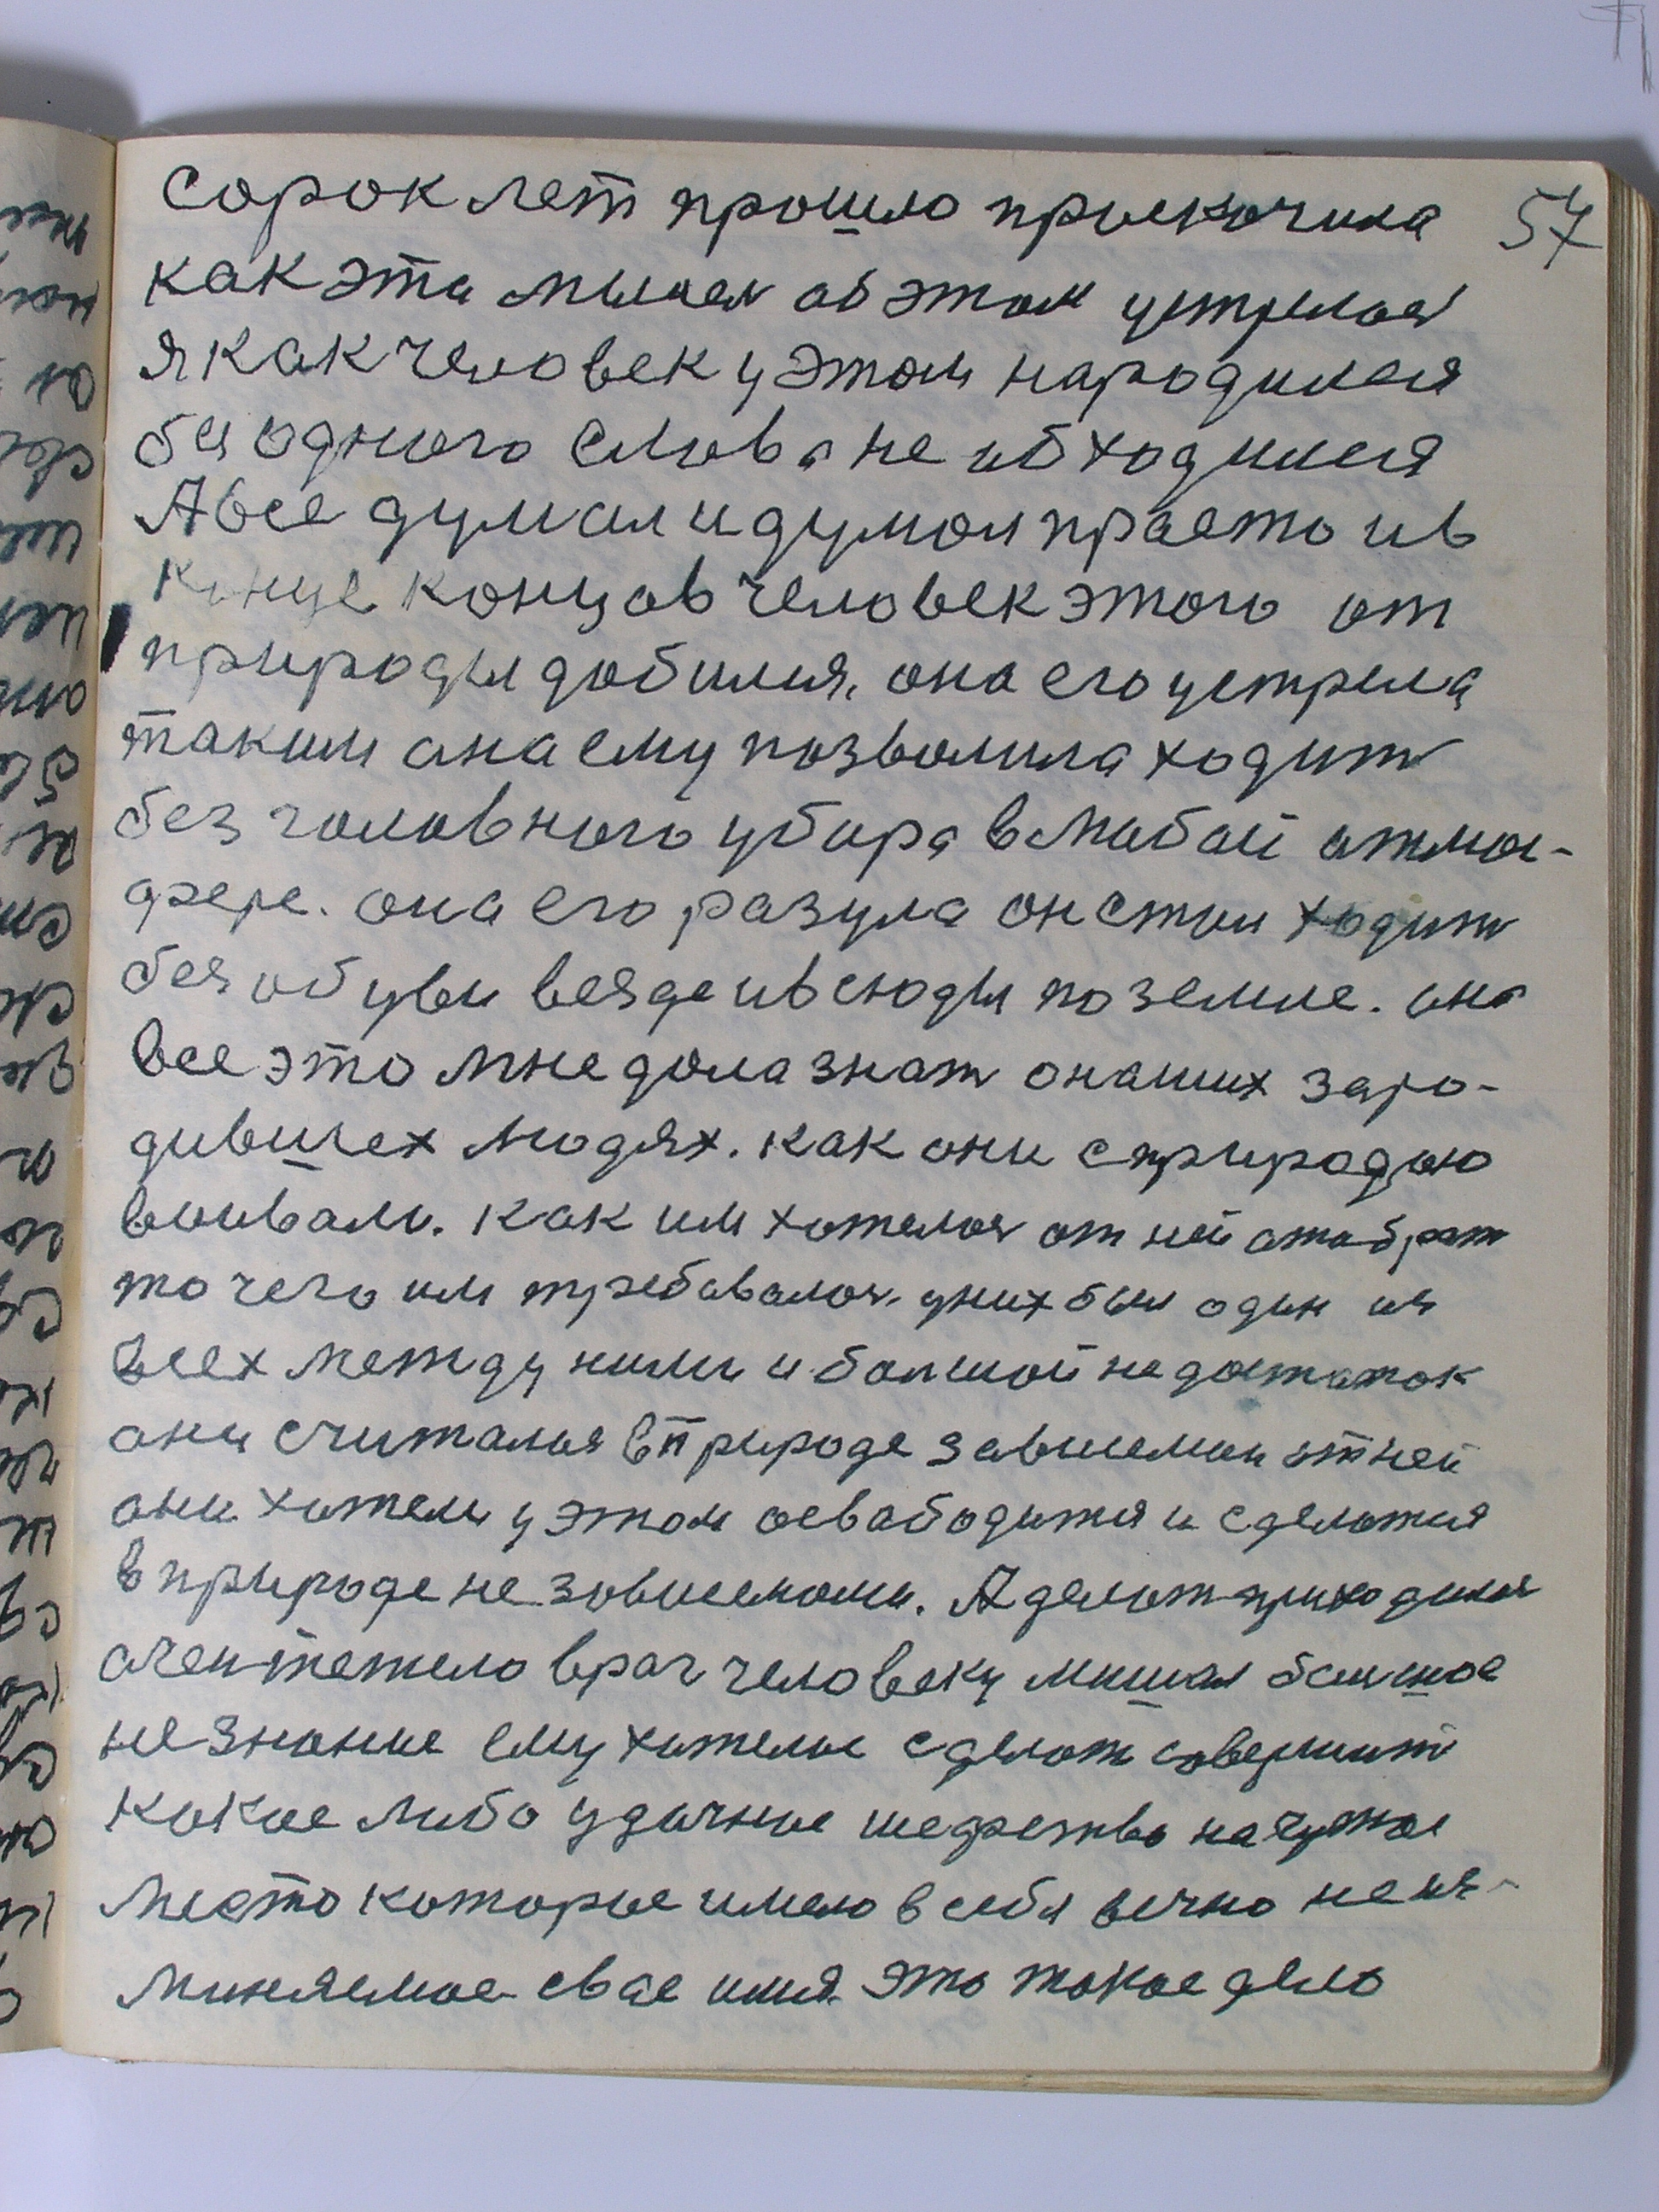 сорок лет прошло прыскочила 57
как эта мысел об этом устрелас
я как человек у этом народилса
без одного слова не обходился
А все думал и думал прасто и в
конце концов человек этого от
природы добилия. она его устрела
таким она ему позволила ходит
без головного убора в любой атмос-
фере. она его разула он стал ходит
без обуви везде и всюды по земле. она
все это мне дала знат о наших заро-
дившех людях. как они с природаю
воивали. как им хотелос от ней отобрат
то чего им требовалос. у них был один из
всех между ними и болшой недостаток
они считалия в природе зависемои от ней
они хотели у этом освабодится и сделатся
в природе не зависемоми. А делат приходилос
очен тежело враг человеку мишал болшое
незнание ему хотелос сделат совершит
какое либо удачное шефство на чужое
место которые имело в себя вечно неиз-
миняемое свае имя. это такое дело